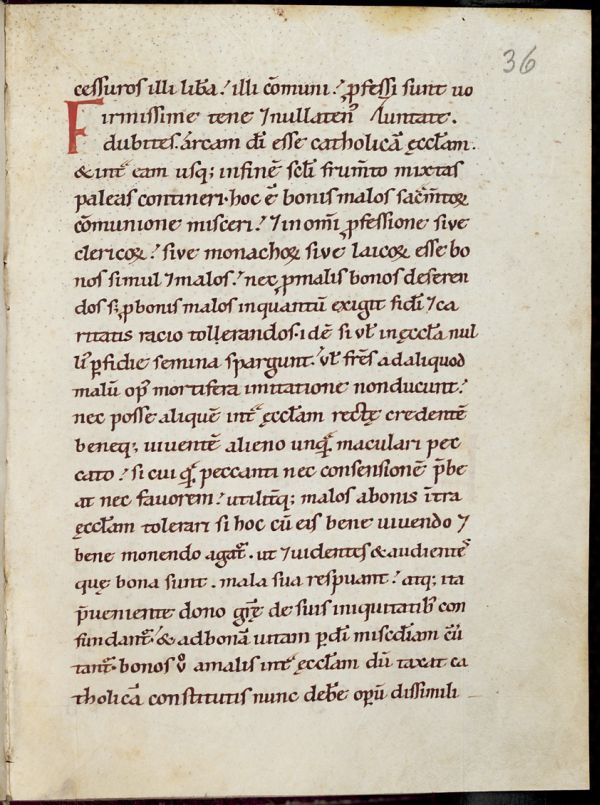 36
cessuros illi lib̄a / illi cōmuni / ꝓfessi sunt uo
Firmissime tene ⁊nullaten᷒ luntate.
dubites. árcam dī esse catholicā ęcclam̄.
& int̄ eam usq; infinē sc̄li frum̄to mixtas
paleas contineri. hoc ē bonis malos sac̄m̄toꝝ
cōmunione misceri / ⁊ in om̄i ꝓfessione sive
clericoꝝ / sive monachoꝝ sive laicoꝝ esse bo
nos simul ⁊ malos / nec ꝓ malis bonos deseren
dos s; ꝓ bonis malos inquantū exigit fidī ⁊ ca
ritatis racio tollerandos. idē si ul̄ in ęccl̄a nul
li᷒ ꝑfidie semina spargunt. ul̄ fr̄es ad aliquod
malū op᷒ mortifera imitatione non ducunt /
nec posse aliquē int̄ ęccl̄am rectę credentē
beneq; viventē alieno unq̄ maculari pec
cato / si cui q̄ peccanti nec consensionē p̄be
at nec favorem / utilit̄q; malos abonis īt̄ra
ęccl̄am tolerari si hoc cū eis bene uiuendo ⁊
bene monendo agat᷑. ut ⁊ uidentes & audientes
quę bona sunt. mala sua respuant / atq; ita
p̄ueniente dono gr̄ę de suis iniquitatib᷒ con
fundant᷑. & ad bonā uitam ꝑ dī misc̄diam cūt
tant᷑. bonos u᷒ amalis int̄ ęccl̄am dū taxat ca
tholicā constitutis nunc deb̄e opū dissimili